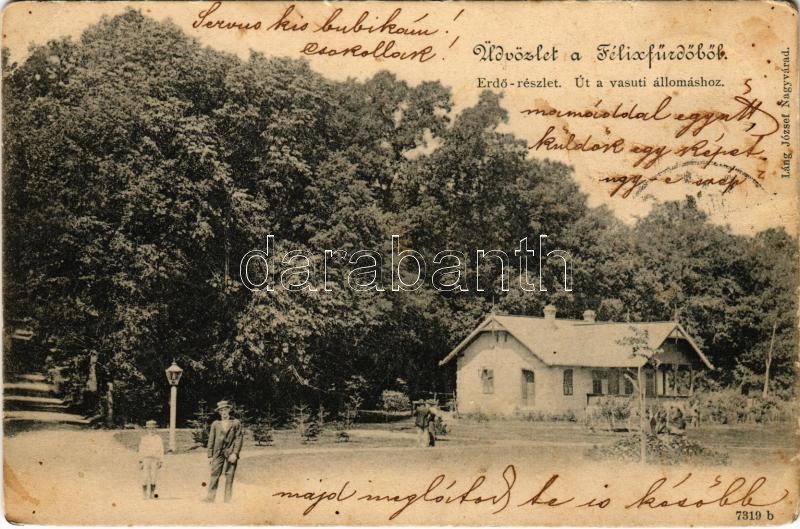 Servus kis bubikám!
csokollak!
Üdvözlet a Félixfürdőből.
Erdő-részlet. Út a vasuti állomáshoz.
mamáoddal egyatt,
kuldok egy képet
ugy-e szép
Láng József Nagyvárad.
darabanth
majd meglátod te is később
7319 b